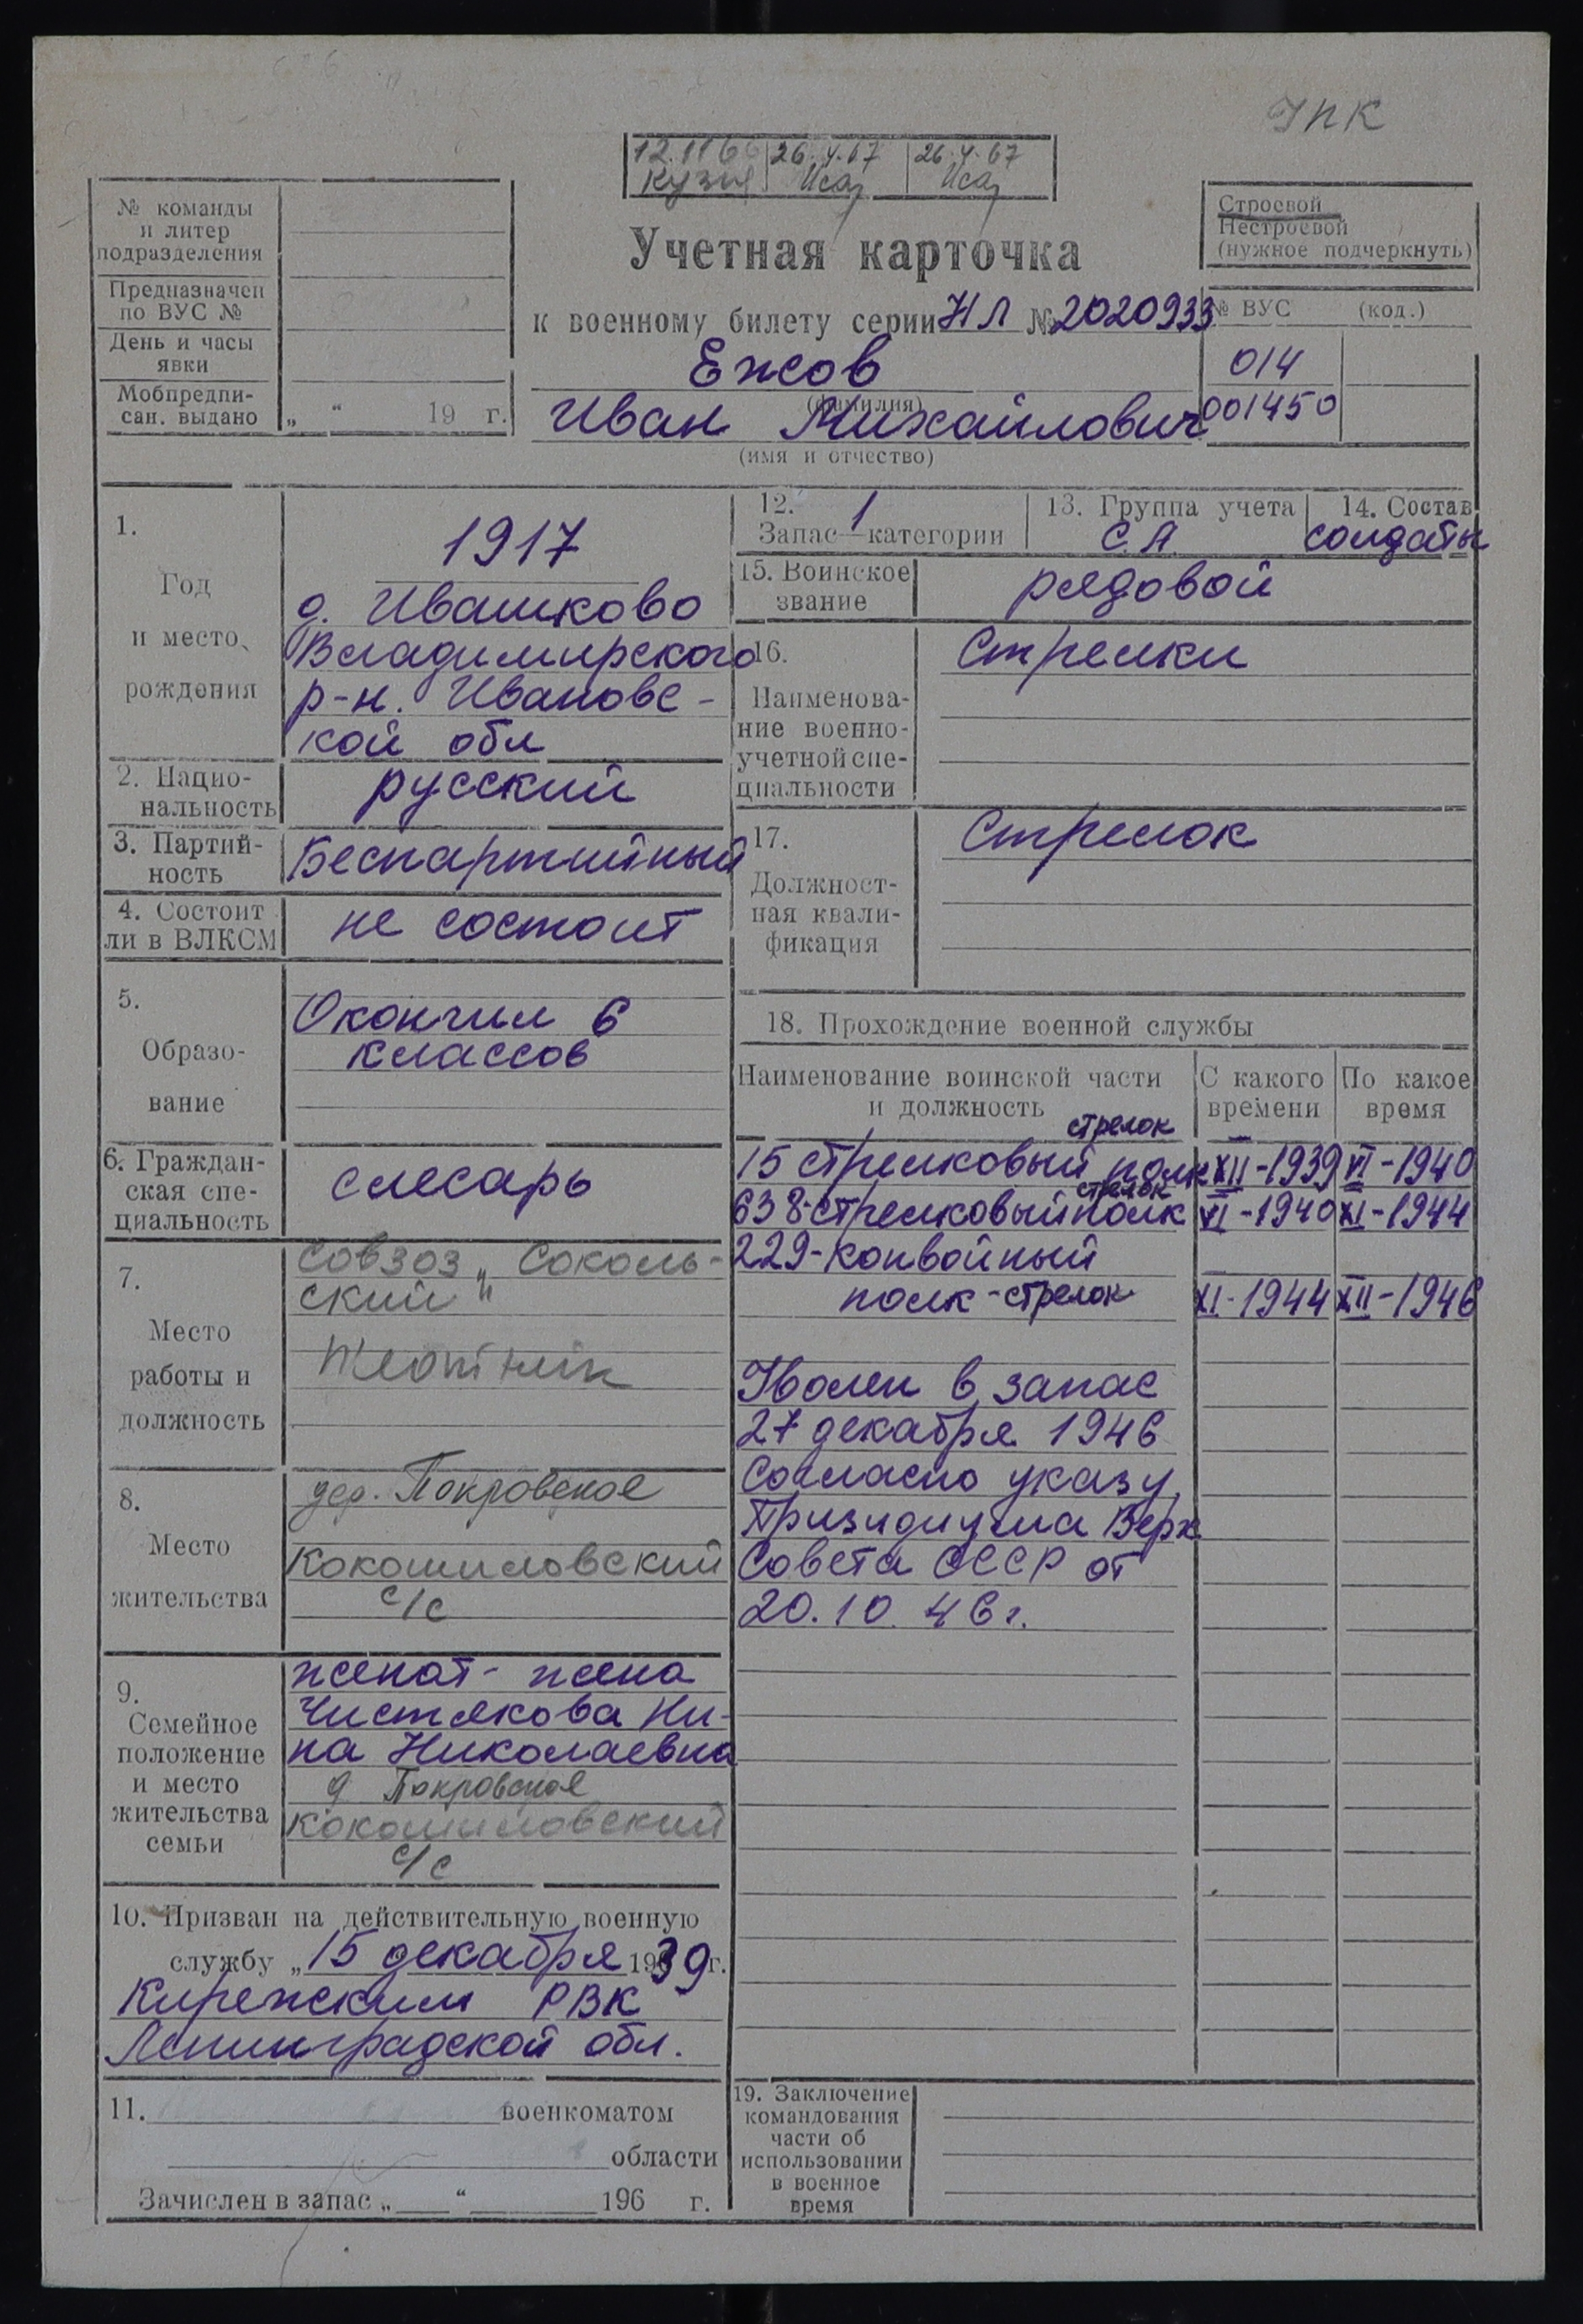 УПК
12.11 66 26.4.67 26.4.67
Кузн Иса Иса
№ команды
и литер
подразделения
Предназначен
по ВУС №
День и часы
явки
Мобпредпи-
сан. выдано „ “ 19 г.
Учетная карточка
к военному билету серии НЛ № 2020933
Ежов
(фамилия)
Иван Михайлович
(имя и отчество)
Строевой
Нестроевой
(нужное подчеркнуть)
№ ВУС (код.)
014
001450
1.
Год
и место
рождения
1917
д. Ивашково
Владимирского
р-н. Ивановс-
кой обл
2. Нацио-
нальность
русский
3. Партий-
ность
Беспартийный
4. Состоит
ли в ВЛКСМ
не состоит
5.
Образо-
вание
Окончил 6
классов
6. Граждан-
ская спе-
циальность
слесарь
7.
Место
работы и
должность
Совзоз „Соколь-
ский"
плотник
8.
Место
жительства
дер. Покровское
Кокошиловский
с/с
9.
Семейное
положение
и место
жительства
семьи
женат - жена
Чистякова Ни-
на Николаевна
д Покровское
Кокошиловский
с/с
10. Призван на действительную военную
службу „15 декабря 1939 г.
Кирежским РВК
Ленинградской обл.
11. военкоматом
области
Зачислен в запас „ “ 196 г.
12. 1
Запас категории
13. Группа учета
С.А.
14. Состав
солдаты
15. Воинское
звание
рядовой
16.
Наименова-
ние военно-
учетной спе-
циальности
Стрелки
17.
Должност-
ная квали-
фикация
Стрелок
18. Прохождение военной службы
Наименование воинской части
и должность
С какого
времени
По какое
время
стрелок
15 стрелковый полк XII-1939 VI-1940
стрелок
638-стрелковый полк VI-1940 XI-1944
229-конвойный
полк-стрелок XI-1944 XII-1946
Уволен в запас
27 декабря 1946
Согласно указу
Призидиума Верх
Совета СССР от
20.10.46г.
19. Заключение
командования
части об
использовании
в военное
время